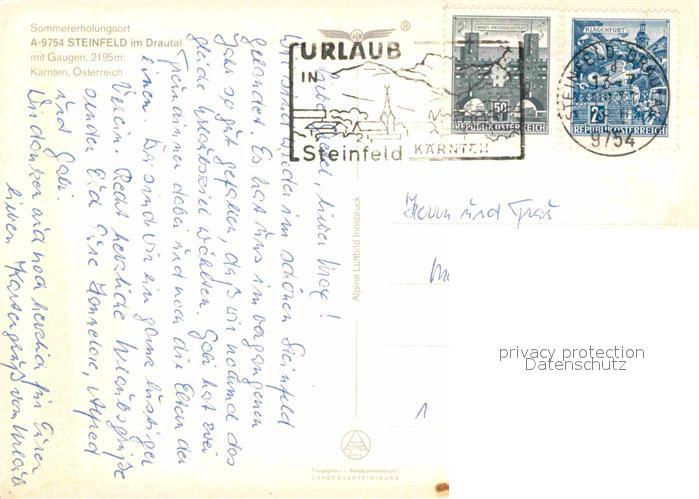 Sommererholungsort
A-9754 STEINFELD im Drautal
mit Gaugen, 2195m:
Kärnten, Österreich
®
URLAUB
IN
Steinfeld KÄRNTEN
50
REPUBLIK ÖSTERREICH
KLAGENFURT
2S
REPUBLIK ÖSTERREICH
9754
liebe Max!
wieder im schönen Steinfeld
gelandet. Es hat uns im vergangenen
Jahr so gut gefallen, daß wir nochmal das
gleiche wählten. Gabi hat zwei
Freundinnen dabei und noch die Eltern der
einen. Da sind wir ein ganz lustiger
Verein. Recht herzliche Urlaubsgrüße
senden Eure Hannelore, Alfred
und Gabi.
Wir danken auch noch herzlich für Euren
lieben Kartengruß vom Urlaub
Alpine Luftbild Innsbruck
Herrn und Frau
privacy protection
Datenschutz
LANDESVERTEIDIGUNG